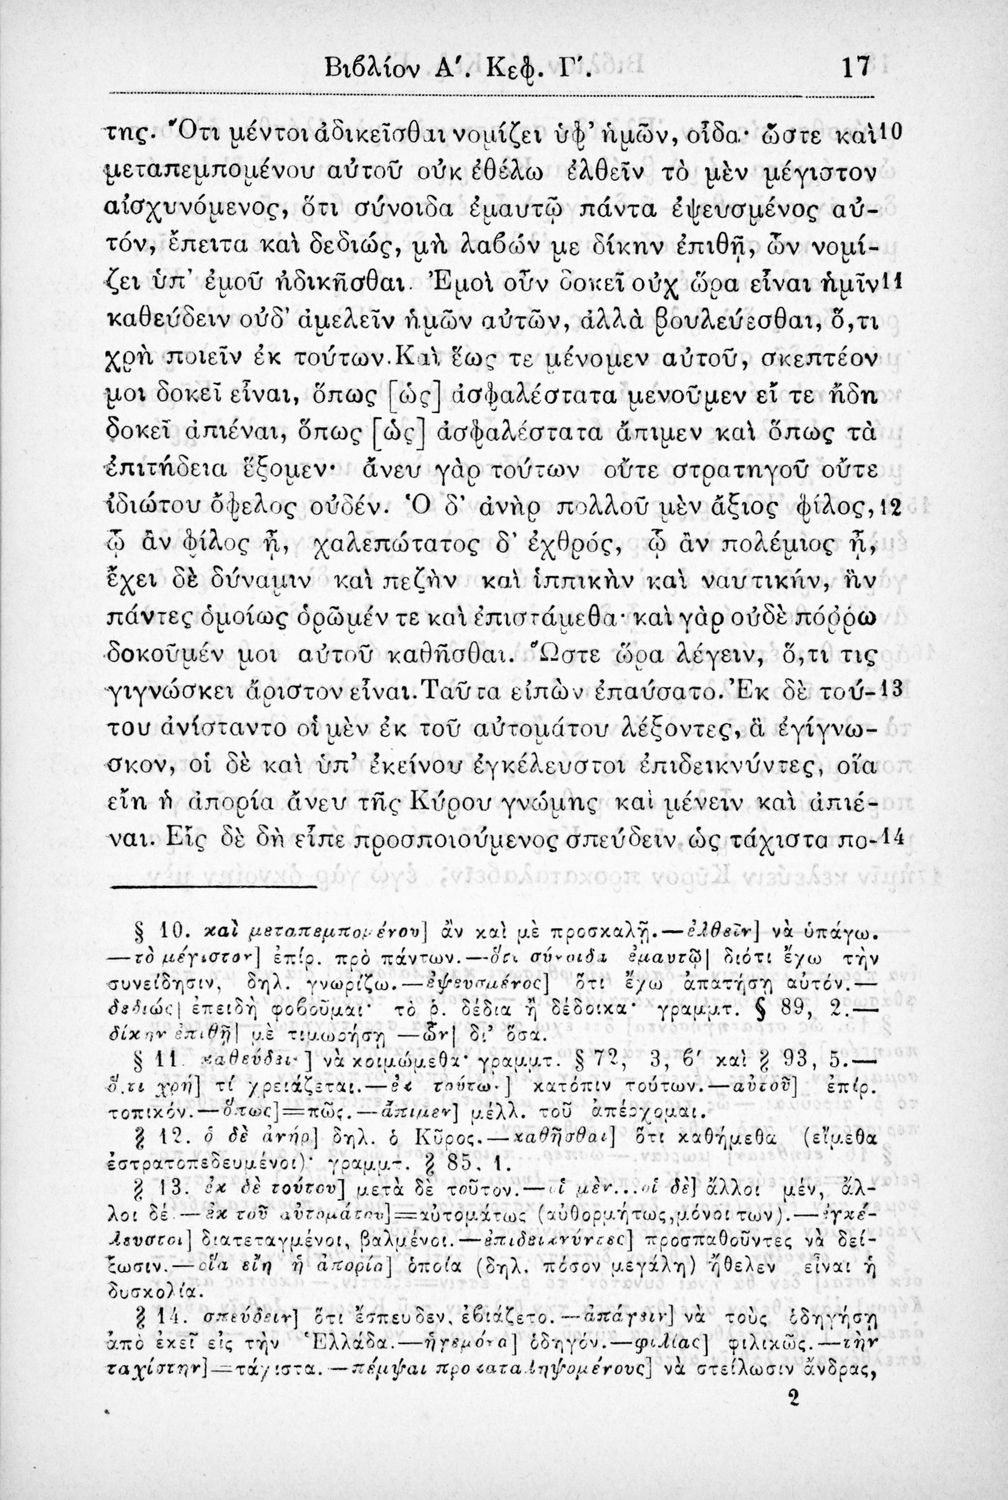 Βιβλίον Α΄. Κεφ. Γ΄. 17
της. Ὅτι μέντοι ἀδικεῖσθαι νομίζει ὑφ’ ἡμῶν, οἶδα· ὥστε καὶ 10
μεταπεμπομένου αὐτοῦ οὐκ ἐθέλω ἐλθεῖν τὸ μὲν μέγιστον
αἰσχυνόμενος, ὅτι σύνοιδα ἐμαυτῷ πάντα ἐψευσμένος αὐ-
τόν, ἔπειτα καὶ δεδιώς, μὴ λαβών με δίκην ἐπιθῇ, ὧν νομί-
ζει ὑπ’ ἐμοῦ ἠδικῆσθαι. Ἐμοὶ οὖν δοκεῖ οὐχ ὥρα εἶναι ἡμῖν 11
καθεύδειν οὐδ’ ἀμελεῖν ἡμῶν αὐτῶν, ἀλλὰ βουλεύεσθαι, ὅ,τι
χρὴ ποιεῖν ἐκ τούτων. Καὶ ἕως τε μένομεν αὐτοῦ, σκεπτέον
μοι δοκεῖ εἶναι, ὅπως [ὡς] ἀσφαλέστατα μενοῦμεν εἴ τε ἤδη
δοκεῖ ἀπιέναι, ὅπως [ὡς] ἀσφαλέστατα ἄπιμεν καὶ ὅπως τὰ
ἐπιτήδεια ἕξομεν· ἄνευ γὰρ τούτων οὔτε στρατηγοῦ οὔτε
ἰδιώτου ὄφελος οὐδέν. Ὁ δ’ ἀνὴρ πολλοῦ μὲν ἄξιος φίλος, 12
ᾧ ἂν φίλος ᾖ, χαλεπώτατος δ’ ἐχθρός, ᾧ ἂν πολέμιος ᾖ,
ἔχει δὲ δύναμιν καὶ πεζὴν καὶ ἱππικὴν καὶ ναυτικήν, ἣν
πάντες ὁμοίως ὁρῶμέν τε καὶ ἐπιστάμεθα· καὶ γὰρ οὐδὲ πόῤῥω
δοκοῦμέν μοι αὐτοῦ καθῆσθαι. Ὥστε ὥρα λέγειν, ὅ,τι τις
γιγνώσκει ἄριστον εἶναι. Ταῦτα εἰπὼν ἐπαύσατο. Ἐκ δὲ τού- 13
του ἀνίσταντο οἱ μὲν ἐκ τοῦ αὐτομάτου λέξοντες, ἃ ἐγίγνω-
σκον, οἱ δὲ καὶ ὑπ’ ἐκείνου ἐγκέλευστοι ἐπιδεικνύντες, οἵα
εἴη ἡ ἀπορία ἄνευ τῆς Κύρου γνώμης καὶ μένειν καὶ ἀπιέ-
ναι. Εἷς δὲ δὴ εἶπε προσποιούμενος σπεύδειν ὡς τάχιστα πο- 14
§ 10. καὶ μεταπεμπομένου] ἂν καὶ μὲ προσκαλῇ.—ἐλθεῖν] νὰ ὑπάγω.
—τὸ μέγιστον] ἐπίρ. πρὸ πάντων.—ὅτι σύνοιδα ἐμαυτῷ] διότι ἔχω τὴν
συνείδησιν, δηλ. γνωρίζω.—ἐψευσμένος] ὅτι ἔχω ἀπατήσῃ αὐτόν.—
δεδιώς] ἐπειδὴ φοβοῦμαι· τὸ ῥ. δέδια ἢ δέδοικα· γραμμτ. § 89, 2.—
δίκην ἐπιθῇ] μὲ τιμωρήσῃ —ὧν] δι’ ὅσα.
§ 11. καθεύδειν] νὰ κοιμώμεθα· γραμμτ. § 72, 3, β΄ καὶ § 93, 5.—
ὅ,τι χρὴ] τί χρειάζεται.—ἐκ τούτων] κατόπιν τούτων.—αὐτοῦ] ἐπίρ.
τοπικόν.—ὅπως]=πῶς.—ἄπιμεν] μέλλ. τοῦ ἀπέρχομαι.
§ 12. ὁ δὲ ἀνήρ] δηλ. ὁ Κῦρος.—καθῆσθαι] ὅτι καθήμεθα (εἴμεθα
ἐστρατοπεδευμένοι)· γραμμτ. § 85. 1.
§ 13. ἐκ δὲ τούτου] μετὰ δὲ τοῦτον.—οἱ μὲν...οἱ δὲ] ἄλλοι μέν, ἄλ-
λοι δέ.—ἐκ τοῦ αὐτομάτου]=αὐτομάτως (αὐθορμήτως, μόνοι των).—ἐγκέ-
λευστοι] διατεταγμένοι, βαλμένοι.—ἐπιδεικνύντες] προσπαθοῦντες νὰ δεί-
ξωσιν.—οἵα εἴη ἡ ἀπορία] ὁποία (δηλ. πόσον μεγάλη) ἤθελεν εἶναι ἡ
δυσκολία.
§ 14. σπεύδειν] ὅτι ἔσπευδεν, ἐβιάζετο.—ἀπάγειν] νὰ τοὺς ὁδηγήσῃ
ἀπὸ ἐκεῖ εἰς τὴν Ἑλλάδα.—ἡγεμόνα] ὁδηγόν.—φιλίας] φιλικῶς.—τὴν
ταχίστην]=τάχιστα.—πέμψαι προκαταληψομένους] νὰ στείλωσιν ἄνδρας,
2